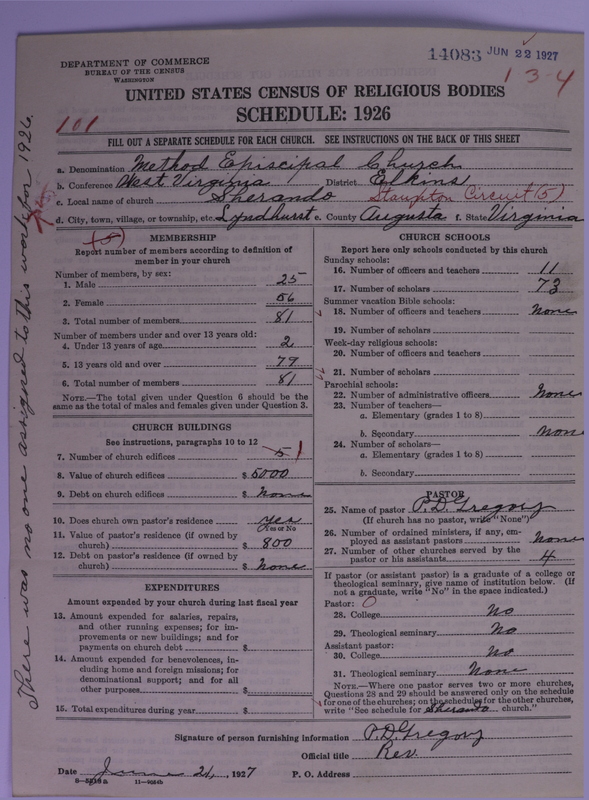 14083 JUN 22 1927
DEPARTMENT OF COMMERCE
BUREAU OF THE CENSUS
WASHINGTON
13-4
UNITED STATES CENSUS OF RELIGIOUS BODIES
SCHEDULE: 1926
101
FILL OUT A SEPARATE SCHEDULE FOR EACH CHURCH. SEE INSTRUCTIONS ON THE BACK OF THIS SHEET
a. Denomination Method Episcipal Church
b. Conference West Virginia District Elkins
c. Local name of church Sherando Staunton Circuit (5)
d. City, town, village, or township, etc. Lyndhurst e. County Augusta f. State Virginia
There was no one assigned to this work for 1926.
(5)
MEMBERSHIP
Report number of members according to definition of
member in your church
Number of members, by sex:
1. Male 25
2. Female 56
3. Total number of members 81
Number of members under and over 13 years old:
4. Under 13 years of age 2
5. 13 years old and over 79
6. Total number of members 81
NOTE.—The total given under Question 6 should be the
same as the total of males and females given under Question 3.
CHURCH BUILDINGS
See instructions, paragraphs 10 to 12
7. Number of church edifices 5 1
8. Value of church edifices $ 5000
9. Debt on church edifices $ None
10. Does church own pastor's residence yes
Yes or No
11. Value of pastor's residence (if owned by
church) $ 800
12. Debt on pastor's residence (if owned by
church) $ None
EXPENDITURES
Amount expended by your church during last fiscal year
13. Amount expended for salaries, repairs,
and other running expenses; for im-
provements or new buildings; and for
payments on church debt $
14. Amount expended for benevolences, in-
cluding home and foreign missions; for
denominational support; and for all
other purposes $
15. Total expenditures during year $
CHURCH SCHOOLS
Report here only schools conducted by this church
Sunday schools:
16. Number of officers and teachers 11
17. Number of scholars 73
Summer vacation Bible schools:
18. Number of officers and teachers None
19. Number of scholars
Week-day religious schools:
20. Number of officers and teachers
21. Number of scholars
Parochial schools:
22. Number of administrative officers None
23. Number of teachers—
a. Elementary (grades 1 to 8)
b. Secondary None
24. Number of scholars—
a. Elementary (grades 1 to 8)
b. Secondary
PASTOR
25. Name of pastor P. D. Gregory
(If church has no pastor, write "None")
26. Number of ordained ministers, if any, em-
ployed as assistant pastors None
27. Number of other churches served by the
pastor or his assistants 4
If pastor (or assistant pastor) is a graduate of a college or
theological seminary, give name of institution below. (If
not a graduate, write "No" in the space indicated.)
Pastor: 0
28. College No
29. Theological seminary No
Assistant pastor:
30. College No
31. Theological seminary None
NOTE.—Where one pastor serves two or more churches,
Questions 28 and 29 should be answered only on the schedule
for one of the churches; on the schedules for the other churches,
write "See schedule for Sherando church."
Signature of person furnishing information P. D. Gregory
Official title Rev.
Date June 21, 1927 P. O. Address
11—9554b